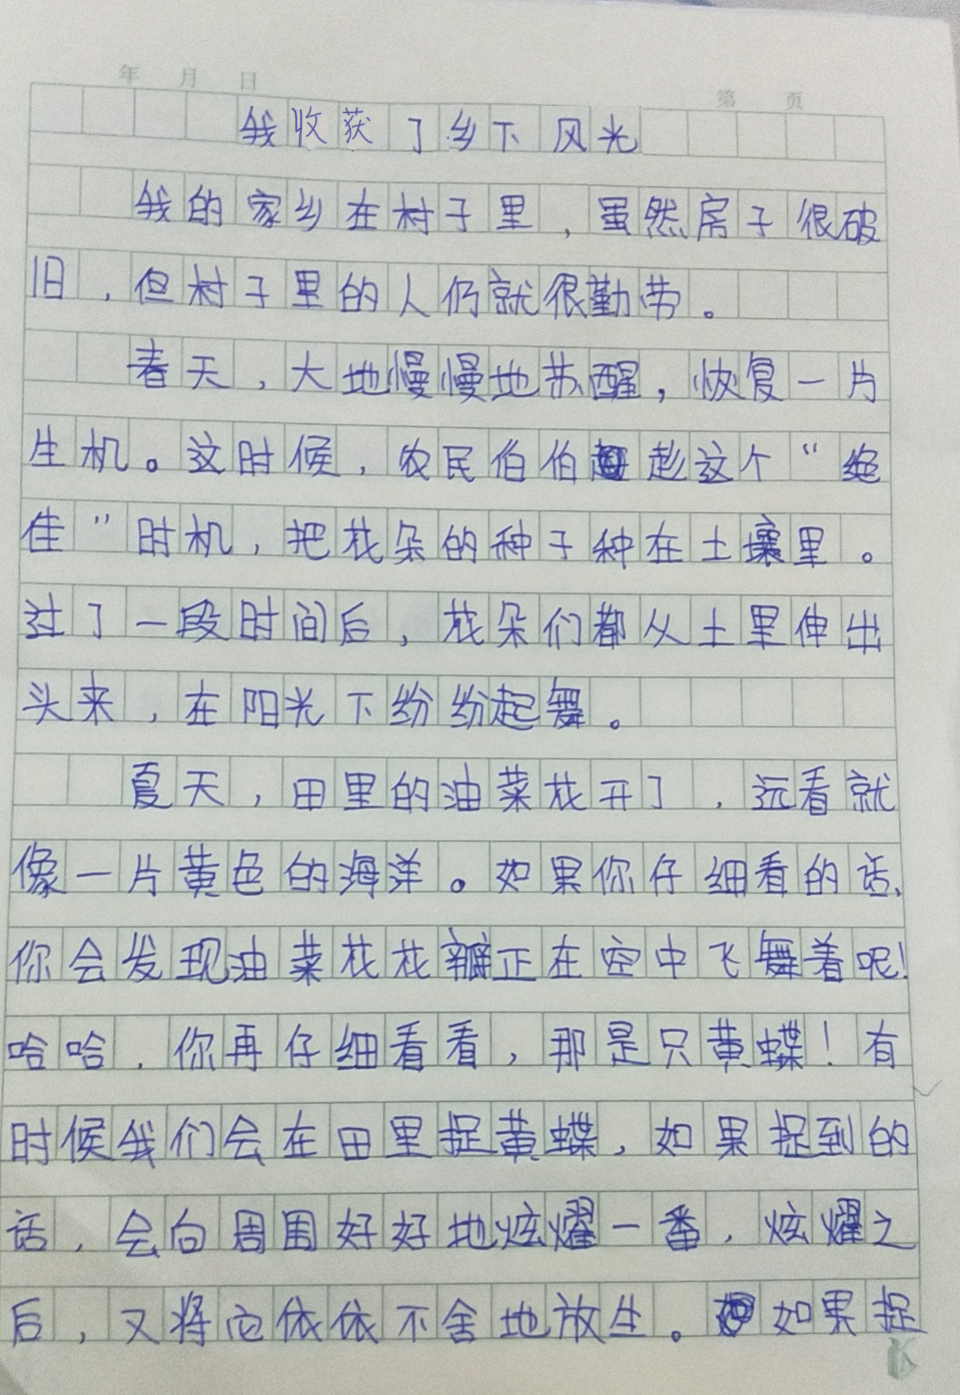 年 月 日
第 页
我收获了乡下风光
我的家乡在村子里，虽然房子很破
旧，但村子里的人仍就很勤劳。
春天，大地慢慢地苏醒，恢复一片
生机。这时候，农民伯伯趁这个“绝
佳”时机，把花朵的种子种在土壤里。
过了一段时间后，花朵们都从土里伸出
头来，在阳光下纷纷起舞。
夏天，田里的油菜花开了，远看就
像一片黄色的海洋。如果你仔细看的话，
你会发现油菜花花瓣正在空中飞舞着呢！
哈哈，你再仔细看看，那是只黄蝶！有
时候我们会在田里捉黄蝶，如果捉到的
话，会向周围好好地炫耀一番，炫耀之
后，又将它依依不舍地放生。如果捉